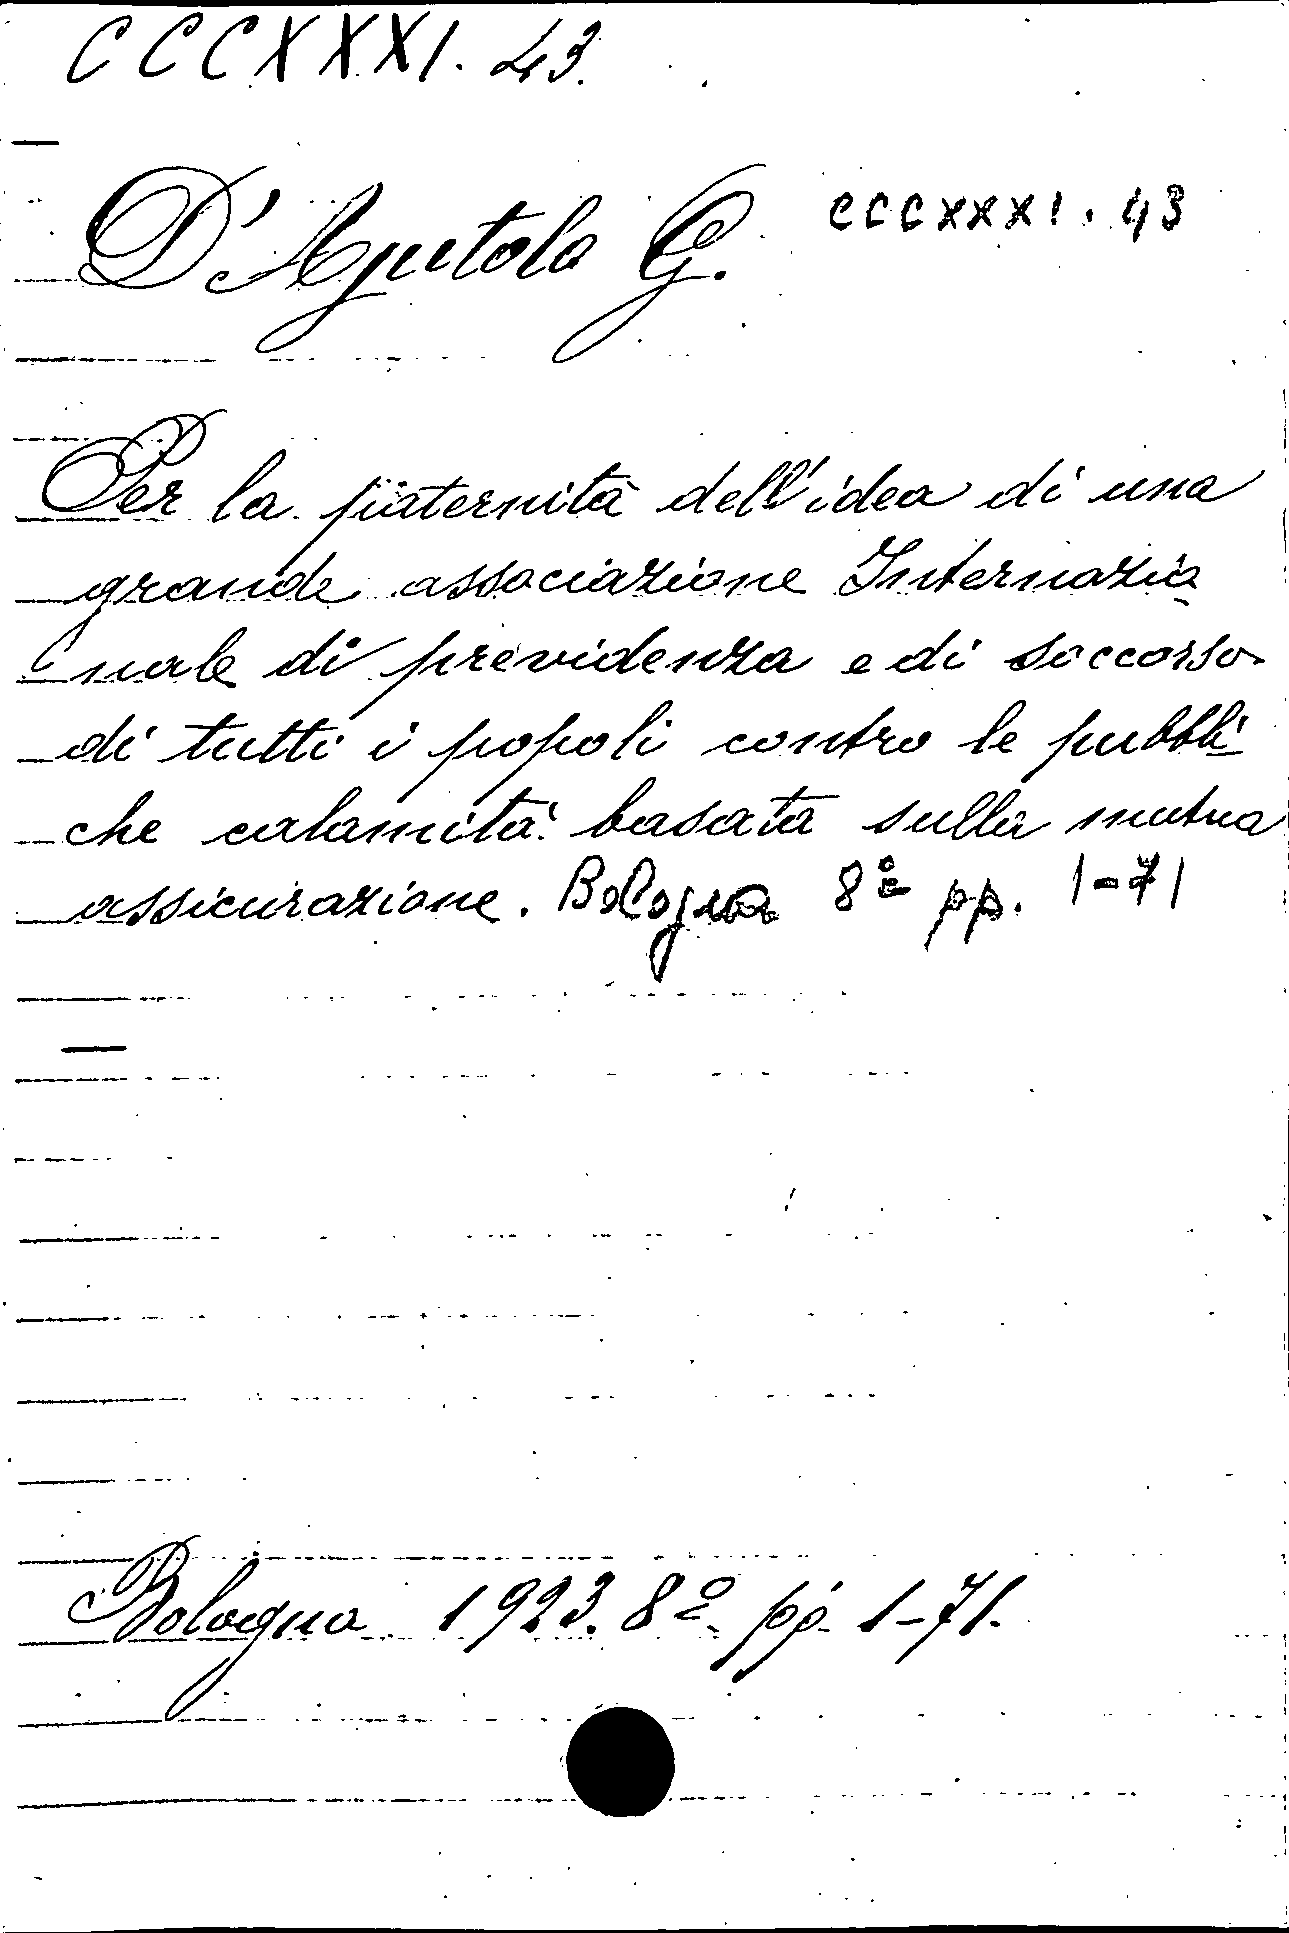 CCCXXXI. 43.
D'Ajutolo G. CCCXXXI. 43
Per la paternità dell'idea di una
grande associazione Internazio
nale di previdenza e di soccorso
di tutti i popoli contro le pubbli
che calamità basata sulla mutua
assicurazione. Bologna 8º pp. 1-71
Bologna 1923. 8º pp. 1-71.